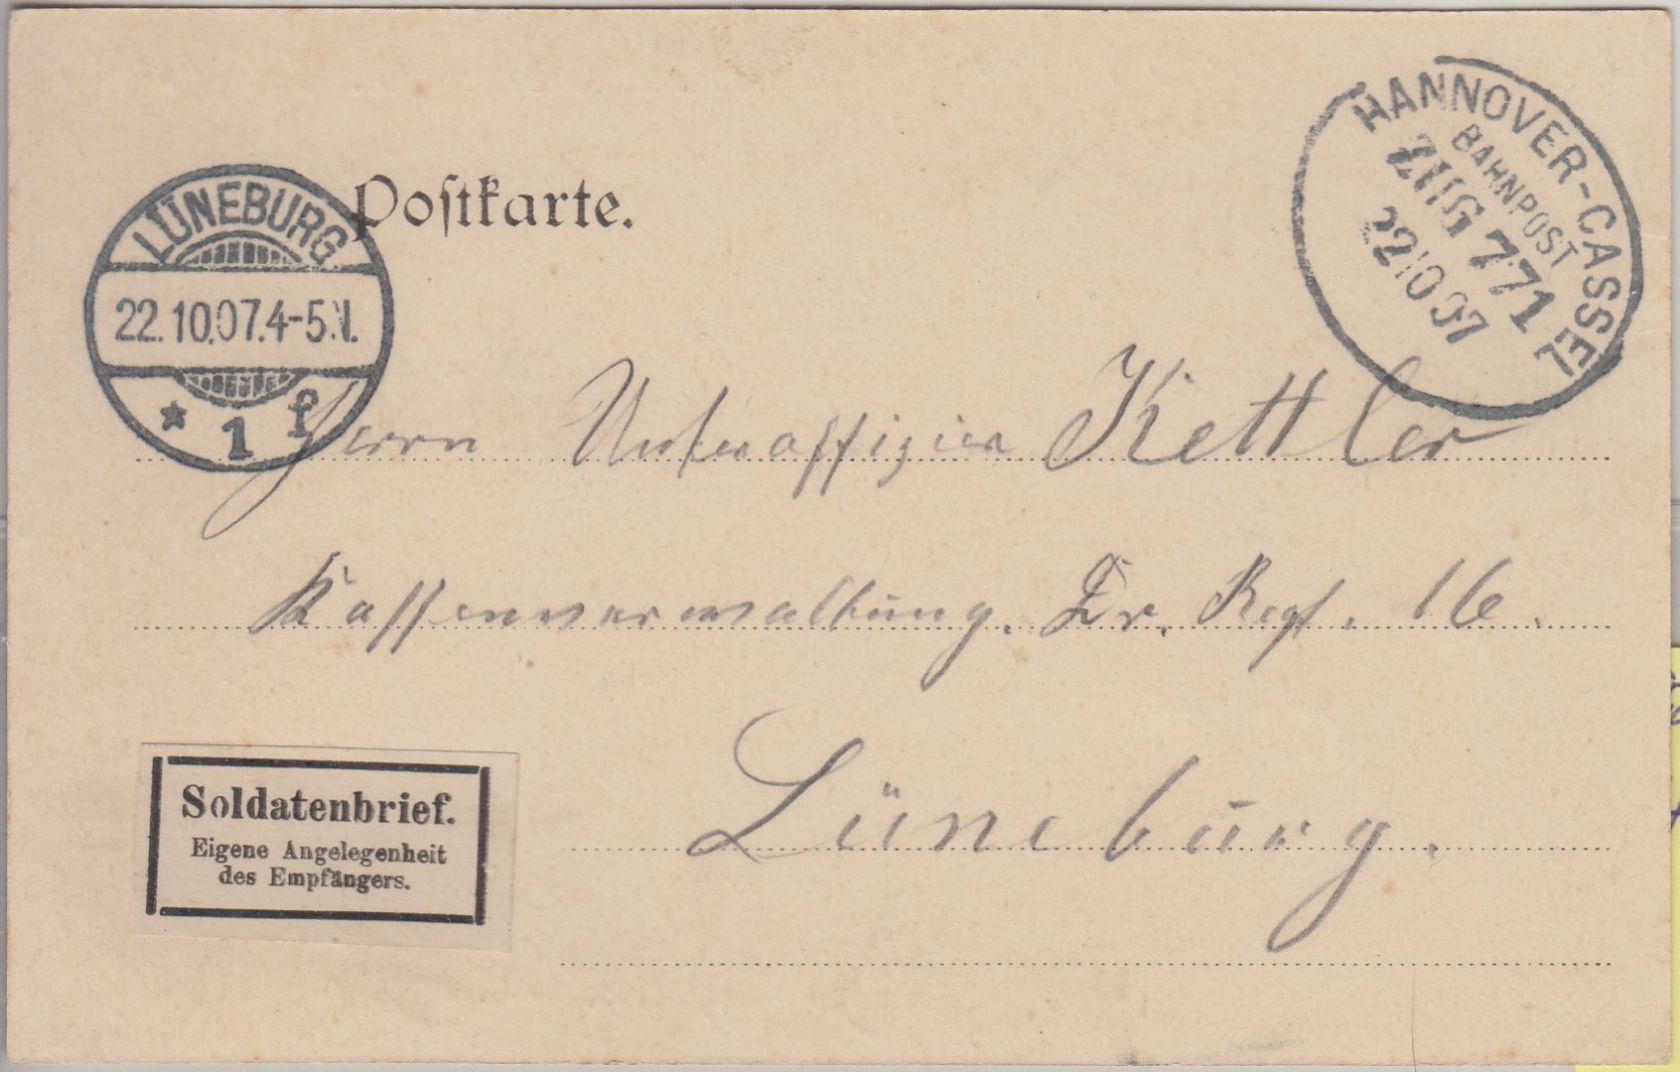 Postkarte.
LÜNEBURG
22.10.07.4-5N.
* 1 f
HANNOVER-CASSEL
BAHNPOST
ZUG 771
22 10 07
Herrn Unteroffizier Kettler
Kassenverwaltung. Dr. Regt. 16.
Lüneburg.
Soldatenbrief.
Eigene Angelegenheit
des Empfängers.